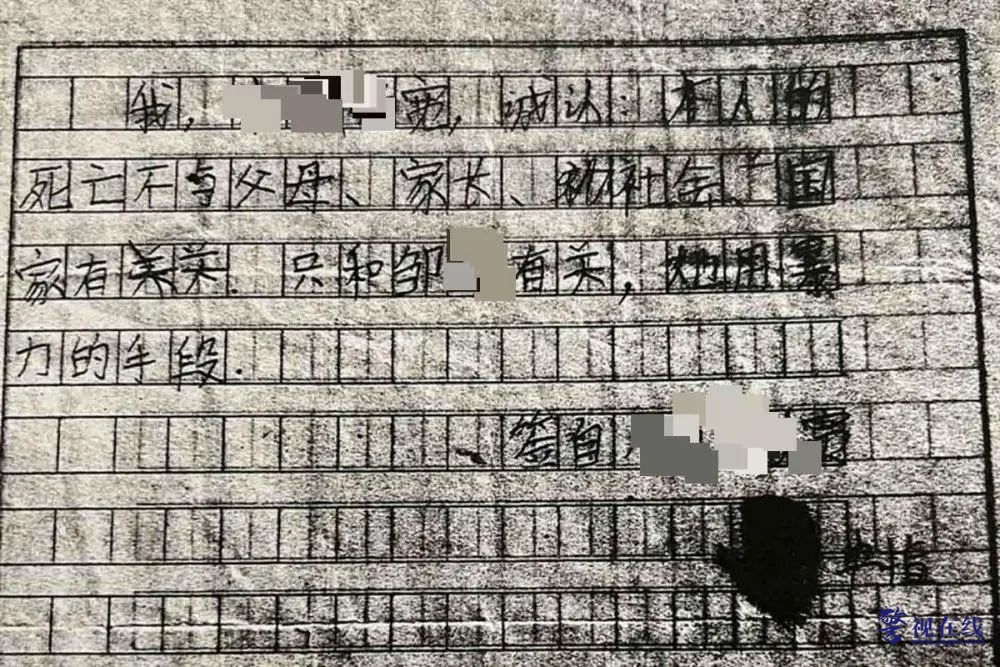 我，宽，诚认：本人的
死亡不与父母、家长、社会、国
家有关. 只和邹有关，她用暴
力的手段.
签自，
中指
警视在线